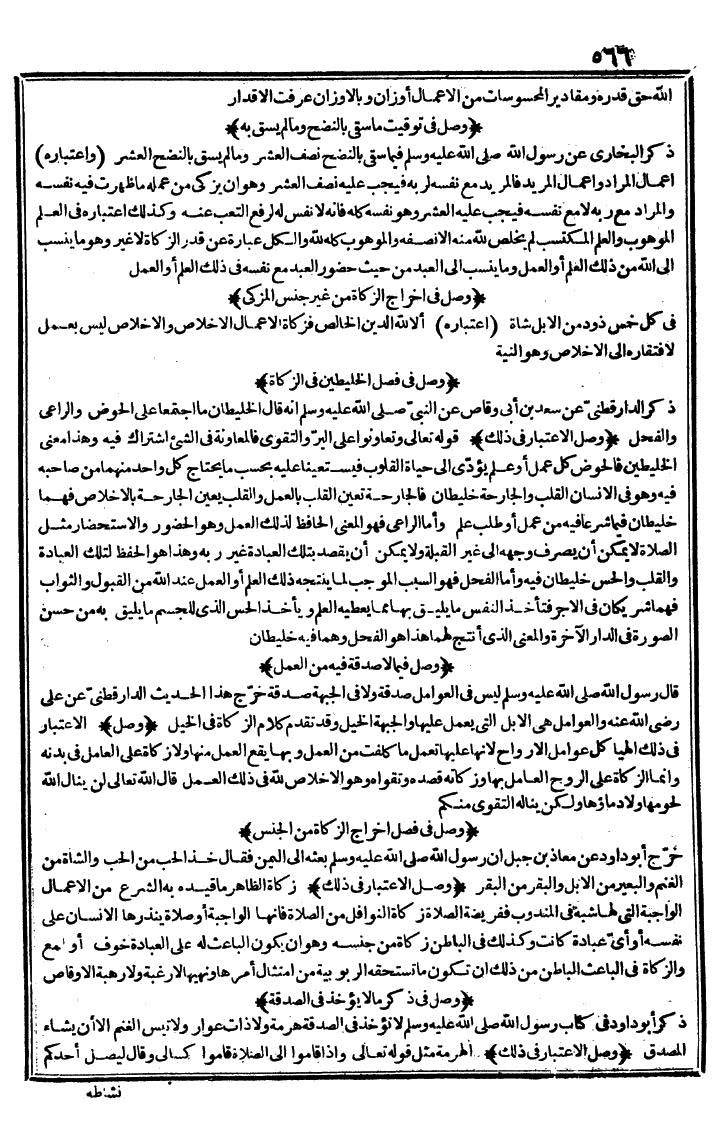 ٥٦٦
الله حق قدره ومقادير المحسوسات من الاعمال أوزان وبالاوزان عرفت الاقدار
﴿وصل فى توقيت ماسقى بالنضح ومالم يسق به﴾
ذكر البخارى عن رسول الله صلى الله عليه وسلم فيما سقى بالنضح نصف العشر ومالم يسق بالنضح العشر (واعتباره)
اعمال المراد واعمال المريد فالمريد مع نفسه لربه فيجب عليه نصف العشر وهو ان يزكى من عمله ما ظهرت فيه نفسه
والمراد مع ربه لا مع نفسه فيجب عليه العشر وهو نفسه كله فانه لا نفس له لرفع التعب عنه وكذلك اعتباره فى العلم
الموهوب والعلم المكتسب لم يخلص لله منه الا نصفه والموهوب كله لله والكل عبارة عن قدر الزكاة لا غير وهو ما ينسب
الى الله من ذلك العلم أو العمل وما ينسب الى العبد من حيث حضور العبد مع نفسه فى ذلك العلم أو العمل
﴿وصل فى اخراج الزكاة من غير جنس المزكى﴾
فى كل خمس ذود من الابل شاة (اعتباره) ألا لله الدين الخالص فزكاة الاعمال الاخلاص والاخلاص ليس بعمل
لافتقاره الى الاخلاص وهو النية
﴿وصل فى فصل الخليطين فى الزكاة﴾
ذكر الدار قطنىّ عن سعد بن أبى وقاص عن النبىّ صلى الله عليه وسلم انه قال الخليطان ما اجتمعا على الحوض والراعى
والفحل ﴿وصل الاعتبار فى ذلك﴾ قوله تعالى وتعاونوا على البرّ والتقوى فالمعاونة فى الشئ اشتراك فيه وهذا معنى
الخليطين فالحوض كل عمل أو علم يؤدّى الى حياة القلوب فيستعينا عليه بحسب ما يحتاج كل واحد منهما من صاحبه
فيه وهو فى الانسان القلب والجارحة خليطان فالجارحة تعين القلب بالعمل والقلب يعين الجارحة بالاخلاص فهما
خليطان فيما شرعا فيه من عمل أو طلب علم وأما الراعى فهو المعنى الحافظ لذلك العمل وهو الحضور والاستحضار مثل
الصلاة لا يمكن أن يصرف وجهه الى غير القبلة ولا يمكن أن يقصد بتلك العبادة غير ربه وهذا هو الحفظ لتلك العبادة
والقلب والحس خليطان فيه وأما الفحل فهو السبب الموجب لما ينتجه ذلك العلم أو العمل عند الله من القبول والثواب
فهما شريكان فى الاجر فتأخذ النفس ما يليق بها مما يعطيه العلم ويأخذ الحس الذى للجسم ما يليق به من حسن
الصورة فى الدار الآخرة والمعنى الذى أنتج لهما هذا هو الفحل وهما فيه خليطان
﴿وصل فيما لا صدقة فيه من العمل﴾
قال رسول الله صلى الله عليه وسلم ليس فى العوامل صدقة ولا فى الجبهة صدقة خرّج هذا الحديث الدار قطنىّ عن على
رضى الله عنه والعوامل هى الابل التى يعمل عليها والجبهة الخيل وقد تقدم كلام الزكاة فى الخيل ﴿وصل﴾ الاعتبار
فى ذلك الهيا كل عوامل الارواح لانها عليها تعمل ما كلفت من العمل وبها يقع العمل منها ولا زكاة على العامل فى بدنه
وانما الزكاة على الروح العامل بها وزكاته قصده وتقواه وهو الاخلاص لله فى ذلك العمل قال الله تعالى لن ينال الله
لحومها ولا دماؤها ولكن يناله التقوى منكم
﴿وصل فى فصل اخراج الزكاة من الجنس﴾
خرّج أبو داود عن معاذ بن جبل ان رسول الله صلى الله عليه وسلم بعثه الى اليمن فقال خذ الحب من الحب والشاة من
الغنم والبعير من الابل والبقر من البقر ﴿وصل الاعتبار فى ذلك﴾ زكاة الظاهر ما قيده به الشرع من الاعمال
الواجبة التى لها شبه فى المندوب ففريضة الصلاة زكاة النوافل من الصلاة فانها الواجبة أو صلاة ينذرها الانسان على
نفسه أو أىّ عبادة كانت وكذلك فى الباطن زكاة من جنسه وهو ان يكون الباعث له على العبادة خوف أو مع
والزكاة فى الباعث الباطن من ذلك ان تكون ما تستحقه الربوبية من امتثال أمرها ونهيها لا رغبة ولا رهبة الا وقاص
﴿وصل فى ذكر ما لا يؤخذ فى الصدقة﴾
ذكر أبو داود فى كتاب رسول الله صلى الله عليه وسلم لا تؤخذ فى الصدقة هرمة ولا ذات عوار ولا تيس الغنم الا أن يشاء
المصدق ﴿وصل الاعتبار فى ذلك﴾ الهرمة مثل قوله تعالى واذا قاموا الى الصلاة قاموا كسالى وقال ليصل أحدكم
نشاطه